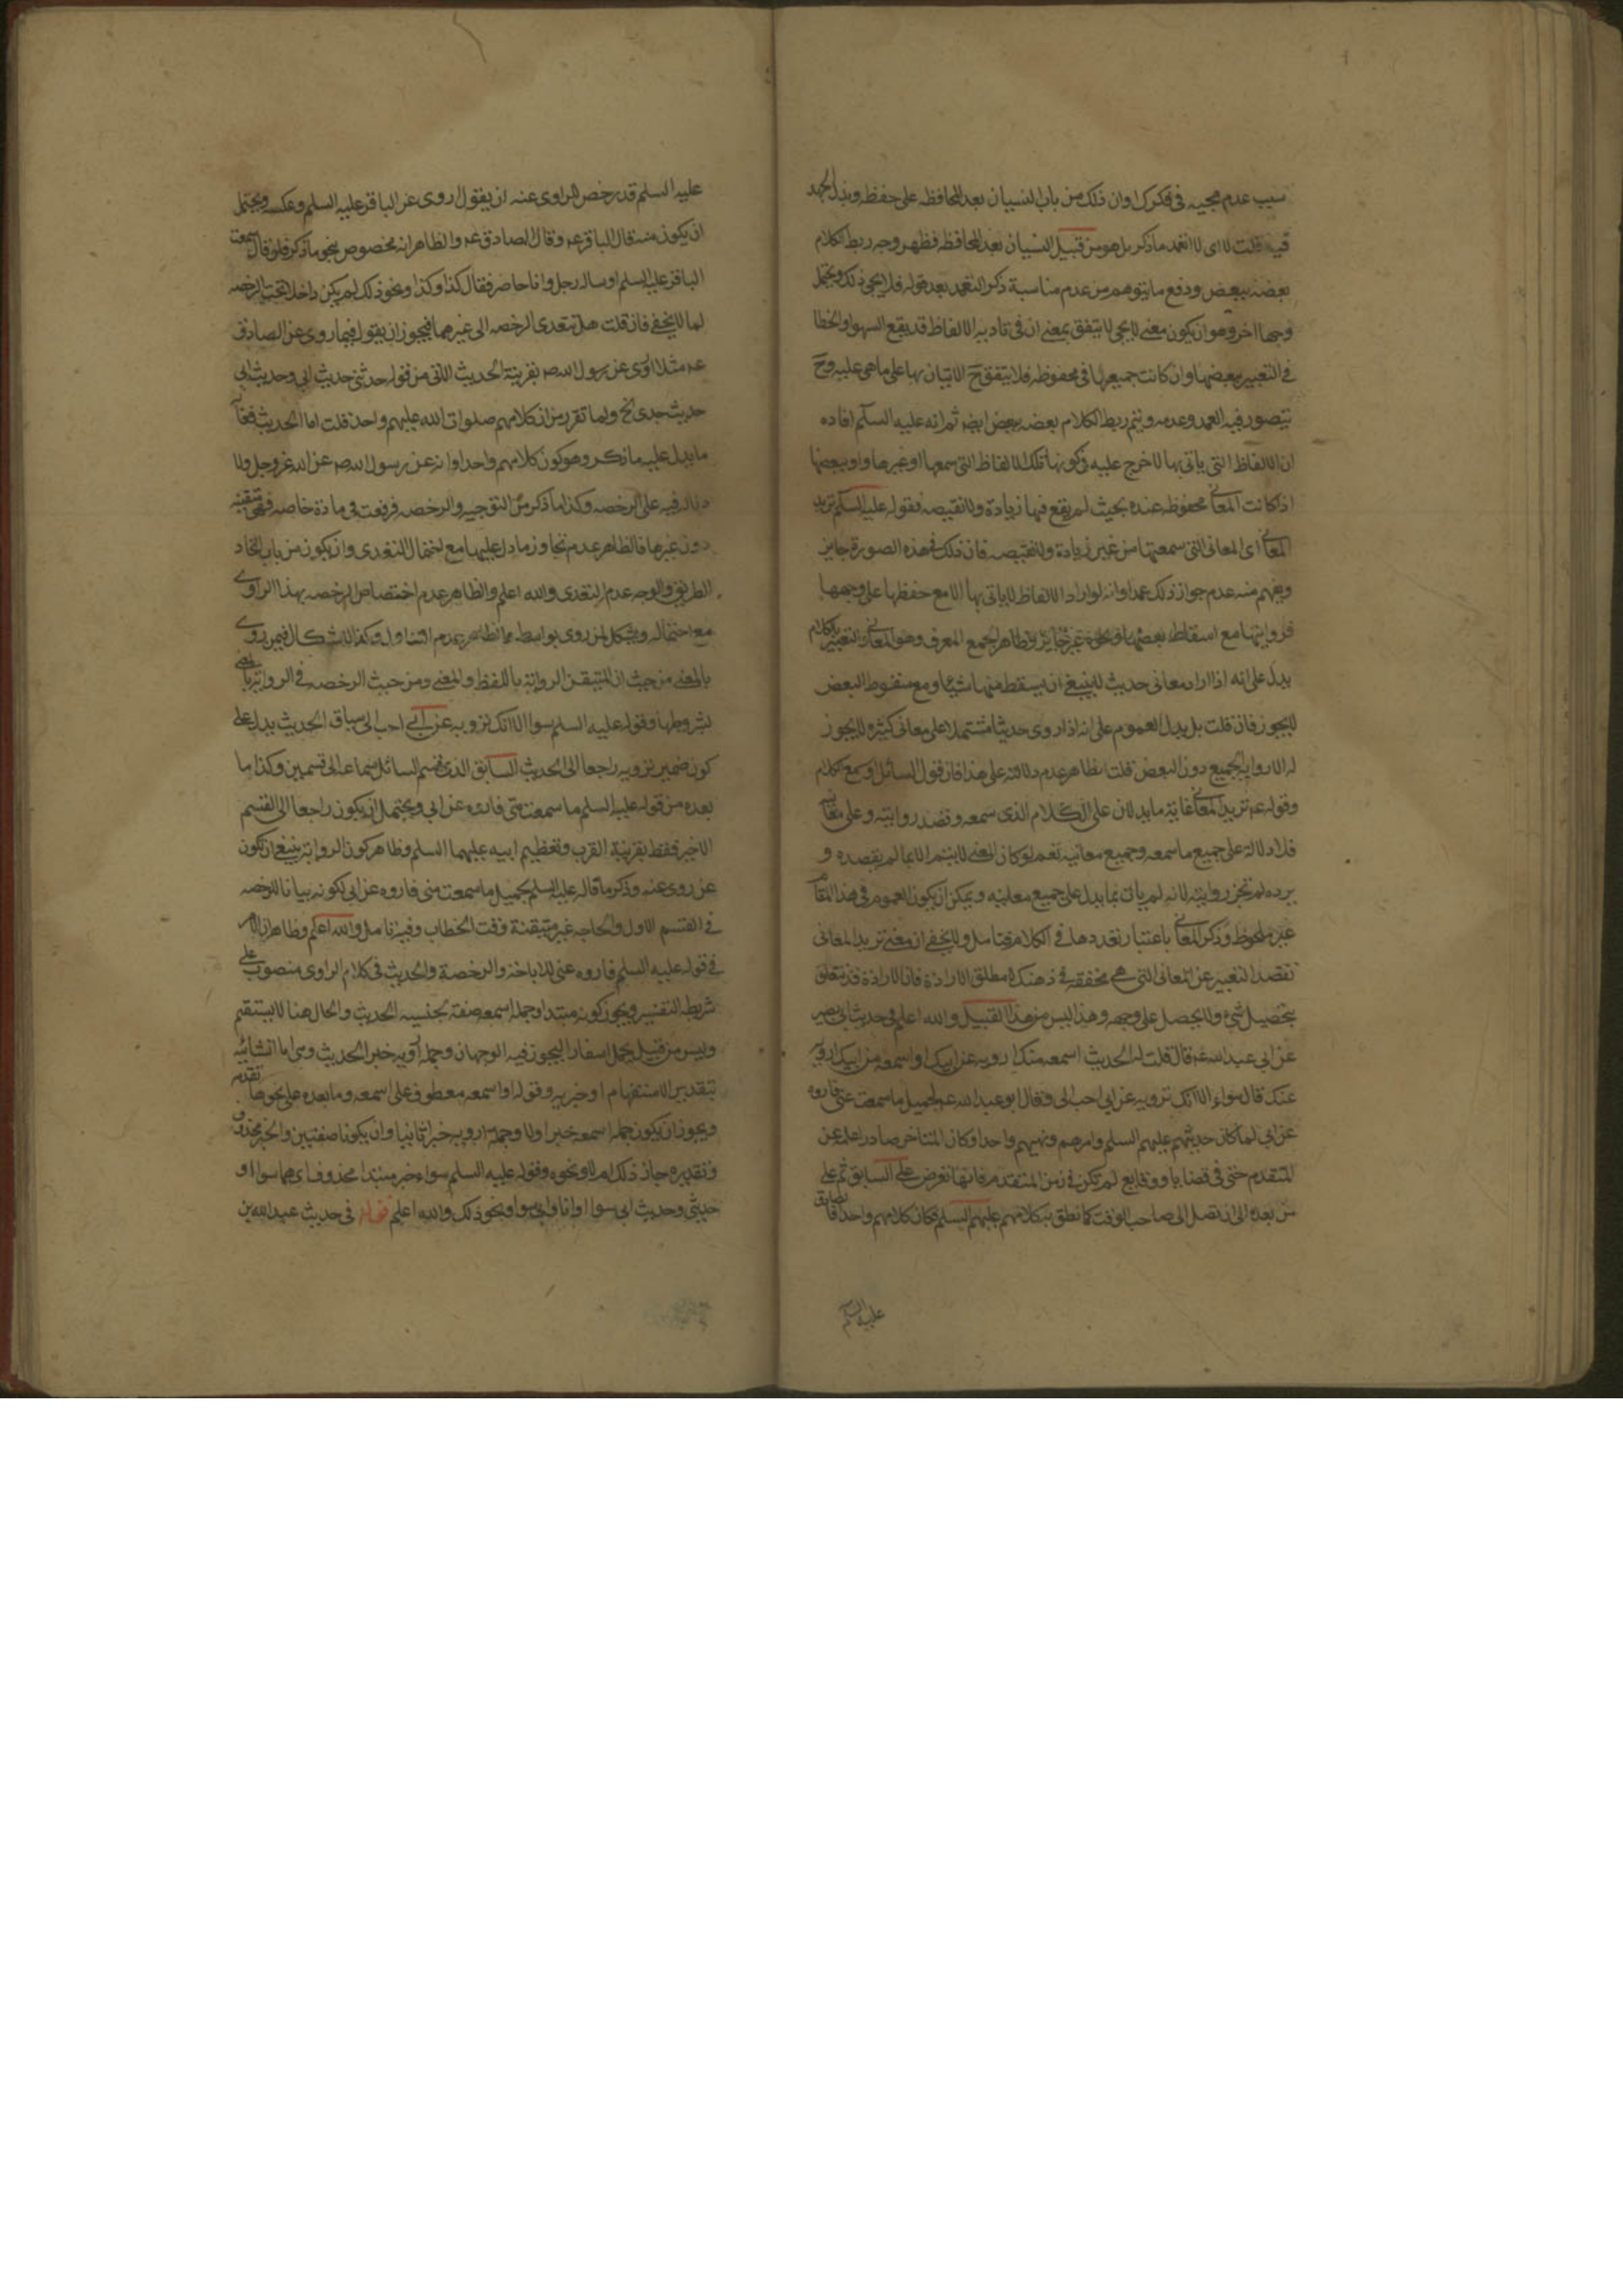 سبب عدم مجيه فى فكرك اوان ذلك من باب النسيان بعد المحافظه على حفظه وبذل الجهد
فيه قلت لا اى لا اتعمد ما ذكر بل هو من قبيل النسيان بعد المحافظه فظهر وجه ربط الكلام
بعضه ببعض ودفع ما يتوهم من عدم مناسبة ذكر التعمد بعد قوله فلا يجى ذلك ويحتمل
وجها اخر وهو ان يكون معنى لا يجى لا يتفق بمعنى ان فى تاديه الالفاظ قد يقع السهو او الخطا
فى التعبير ببعضها وان كانت جميعها فى محفوظه فلا يتفق ح الاتيان بها على ماهى عليه وح
يتصور فيه العمد وعدمه ويتم ربط الكلام بعضه ببعض ايضا ثم انه عليه السلم افاده
ان الالفاظ التى ياتى بها لا حرج عليه فى كونها تلك الالفاظ التى سمعها او غيرها او ببعضها
اذا كانت المعانى محفوظه عنده بحيث لم يقع فيها زيادة ولا نقيصه فقوله عليه السلم تريد
المعانى اى المعانى التى سمعتها من غير زيادة ولا نقيصه فان ذلك فى هذه الصورة جايز
ويفهم منه عدم جواز ذلك عمدا وانه لو اراد الالفاظ لا ياتى بها الا مع حفظها على وجهها
فروايتها مع اسقاط بعضها غير جايز وظاهر الجمع المعرف وهو المعانى والتعبير بالكلام
يدل على انه اذا اراد معانى حديث لا ينبغى ان يسقط منها شيئا ومع سقوط البعض
لا يجوز فان قلت بل يدل العموم على انه اذا روى حديثا مشتملا على معانى كثيره لا يجوز
له الا رواية الجميع دون البعض قلت الظاهر عدم دلالته على هذا فان قول السائل اسمع الكلام
وقوله عم تريد المعانى غاية ما يدلان على الكلام الذى سمعه وقصد روايته وعلى معانيه
فلا دلالة على جميع ما سمعه وجميع معانيه نعم لو كان المعنى لا يتم الا بما لم يقصده و
يرده لم تجز روايته لانه لم يات بما يدل على جميع معانيه ويمكن ان يكون العموم فى هذا المقام
غير ملحوظ وذكر المعانى باعتبار تعددها فى الكلام فتامل ولا يخفى ان معنى تريد المعانى
تقصد التعبير عن المعانى التى هى محققه فى ذهنك لا مطلق الارادة فان الارادة قد تتعلق
بتحصيل شىء ولا يحصل على وجهه وهذا ليس من هذا القبيل والله اعلم فى حديث ابى بصير
عن ابى عبد الله عم قال قلت له الحديث اسمعه منك ارويه عن ابيك او اسمعه من ابيك ارويه
عنك قال سواء الا انك ترويه عن ابى احب الى وقال ابو عبد الله عم لجميل ما سمعت منى فاروه
عن ابى لما كان حديثهم عليهم السلم وامرهم ونهيهم واحدا وكان المتاخر صادر علمه عن
المتقدم حتى فى قضايا ووقايع لم تكن فى زمن المتقدم فانها تعرض على السابق ثم على
من بعده الى ان تصل الى صاحب الوقت كما نطق به كلامهم عليهم السلم فكان كلامهم واحدا فالصادق
عليه السلم
عليه السلم قد رخص للراوى عنه ان يقول روى عن الباقر عليه السلم وعكسه ويحتمل
ان يكون منه قال الباقر عم وقال الصادق عم والظاهر انه مخصوص بنحو ما ذكر فلو قال سمعت
الباقر عليه السلم او ساله رجل وانا حاضر فقال كذا وكذا ونحو ذلك لم يكن داخلا تحت الرخصه
لما لا يخفى فان قلت هل تتعدى الرخصه الى غيرهما فيجوز ان يقول فيما روى عن الصادق
عم مثلا اروى عن رسول الله ص بقرينة الحديث الاتى من قوله حدثنى حديث ابى وحديث ابى
حديث جدى الخ ولما تقرر من ان كلامهم صلوات الله عليهم واحد قلت اما الحديث فغاية
ما يدل عليه ما ذكر وهو كون كلامهم واحدا وانه عن رسول الله ص عن الله عز وجل ولا
دلاله فيه على الرخصه وكذا ما ذكر من التوجيه والرخصه قد وقعت فى مادة خاصه فهى متيقنه
دون غيرها فالظاهر عدم تجاوز ما دل عليها مع احتمال التعدى وان يكون من باب اتحاد
الطريق والوجه عدم التعدى والله اعلم والظاهر عدم اختصاص الرخصه بهذا الراوى
مع احتماله ويشكل من روى بواسطه مما الظاهر عدم التناول وكذا الاشكال فيمن يروى
بالمعنى من حيث ان المتيقن الرواية باللفظ والمعنى ومن حيث الرخصه فى الرواية بالمعنى
بشروطها وقوله عليه السلم سوا الا انك ترويه عن ابى احب الى سياق الحديث يدل على
كون ضمير ترويه راجعا الى الحديث السابق الذى قسم السائل سماعه الى قسمين وكذا ما
بعده من قوله عليه السلم ما سمعت منى فاروه عن ابى ويحتمل ان يكون راجعا الى القسم
الاخير فقط بقرينة القرب وتعظيم ابيه عليهما السلم وظاهر كون الرواية ينبغى ان تكون
عن روى عنه وذكر ما قاله عليه السلم لجميل ما سمعت منى فاروه عن ابى لكونه بيانا للرخصه
فى القسم الاول والحاجه غير متيقنة وقت الخطاب وفيه تامل والله اعلم وظاهر ان الامر
فى قوله عليه السلم فاروه عنى للاباحة والرخصة والحديث فى كلام الراوى منصوب على
شريطه التفسير ويجوز كونه مبتدا وجملة اسمعه صفة لجنسيه الحديث والحال هنا لا يستقيم
وليس من قبيل يحمل اسفارا ليجوز فيه الوجهان وجملة ارويه خبر الحديث وهى اما انشائيه
بتقدير الاستفهام او خبريه وقوله او اسمعه معطوف على اسمعه وما بعده على نحو ما تقدم
ويجوز ان يكون جملة اسمعه خبرا اولا وجملة ارويه خبرا ثانيا وان يكونا صفتين والخبر محذوف
وتقديره جاز ذلك ام لا ونحوه وقوله عليه السلم سواء خبر مبتدا محذوف اى هما سوا او
حديثى وحديث ابى سوا او انا وابى سوا ونحو ذلك والله اعلم قوله فى حديث عبد الله بن